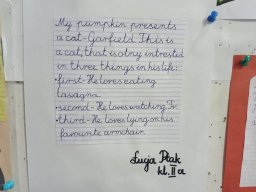 My pumpkin presents
a cat-Garfield. This is
a cat, that is olny intrested
in three things in his life:
•first-He loves eating
lasagna.
•second-He loves watching Tv.
•third-He loves lying on his
favourite armchair.
Łucja Ptak
kl. II a